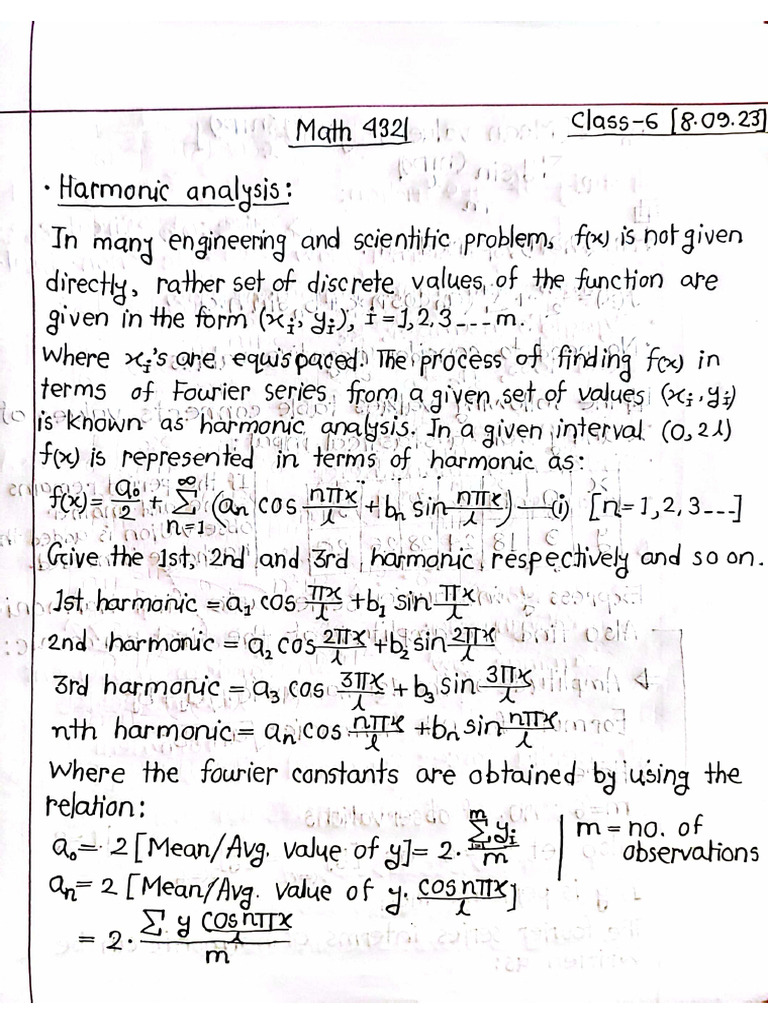 Math 4321
Class-6 [8.09.23]
• Harmonic analysis:
In many engineering and scientific problem, f(x) is not given
directly, rather set of discrete values of the function are
given in the form (xᵢ, yᵢ), i = 1, 2, 3 --- m.
Where xᵢ's are equispaced. The process of finding f(x) in
terms of Fourier series from a given set of values (xᵢ, yᵢ)
is known as harmonic analysis. In a given interval (0, 2l)
f(x) is represented in terms of harmonic as:
f(x) = a₀/2 + ∑_{n=1}^{∞} (aₙ cos nπx/l + bₙ sin nπx/l) —(i) [n = 1, 2, 3 ---]
Give the 1st, 2nd and 3rd harmonic respectively and so on.
1st harmonic = a₁ cos πx/l + b₁ sin πx/l
2nd harmonic = a₂ cos 2πx/l + b₂ sin 2πx/l
3rd harmonic = a₃ cos 3πx/l + b₃ sin 3πx/l
nth harmonic = aₙ cos nπx/l + bₙ sin nπx/l
Where the fourier constants are obtained by using the
relation:
a₀ = 2 [Mean/Avg. value of y] = 2 · ∑^{m} yᵢ/m | m = no. of
observations
aₙ = 2 [Mean/Avg. value of y. cos nπx/l]
= 2 · ∑ y cos nπx/l / m